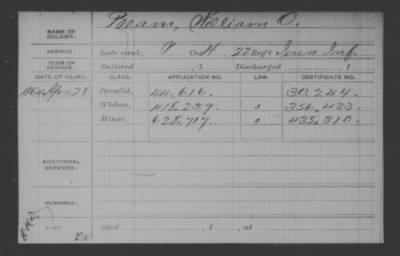 NAME OF SOLDIER: Beam, William O.
SERVICE: Late rank, P Co. H, 22 Reg't Iowa Inf.
TERM OF SERVICE: Enlisted , 1 Discharged , 1
DATE OF FILING. CLASS. APPLICATION NO. LAW. CERTIFICATE NO.
1864 Apr. 28 Invalid, 44,616. 30,244.
Widow, 418,239. 356,433.
Minor, 628,717. 435,310.
ADDITIONAL SERVICES:
REMARKS:
Died , 1 , at